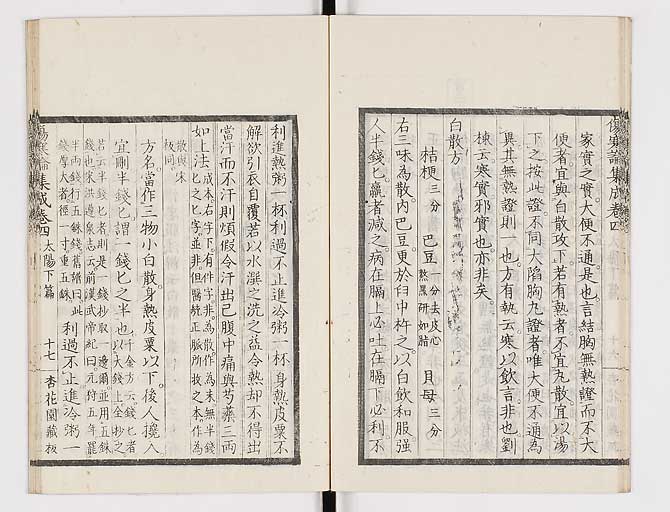 傷寒論集成卷四
家實之實大便不通是也言結胸無熱證而不大
便者宜與白散攻下若有熱者不宜丸散宜以湯
下之按此證不同大陷胸丸證者唯大便不通為
異其無熱證則一也方有執云寒以飲言非也劉
棟云寒實邪實也亦非矣
白散方
桔梗三分 巴豆一分去皮心熬黑研如脂 貝母三分
右三味為散內巴豆更於臼中杵之以白飲和服強
人半錢匕羸者減之病在膈上必吐在膈下必利不
利進熱粥一杯利過不止進冷粥一杯身熱皮粟不
解欲引衣自覆若以水潠之洗之益令熱却不得出
當汗而不汗則煩假令汗出已腹中痛與芍藥三兩
如上法成本右字下有件字非為散作為末無半錢
匕之匕字並非但醫統正脈所收之本作為
散與宋
板同
方名當作三物小白散身熱皮粟以下後人攙入
宜刪半錢匕謂一錢匕之半也千金方云錢匕者以大錢上全抄之
若云半錢匕者則是一錢抄取一邊爾並用五銖
錢也宋洪遵泉志云前漢武帝紀曰元狩五年罷
半兩錢行五銖錢舊譜曰此
錢厚大者徑一寸重五銖利過不止進冷粥一
傷寒論集成卷四 太陽下篇 十七 杏花園藏板